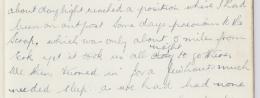 about daylight reached a position where I had
been on outpost some days previous to the
Scrap, which was only about 5 miles from
Erk yet it took us all night to go there.
We then turned in for a few hours much
needed sleep as we had had none